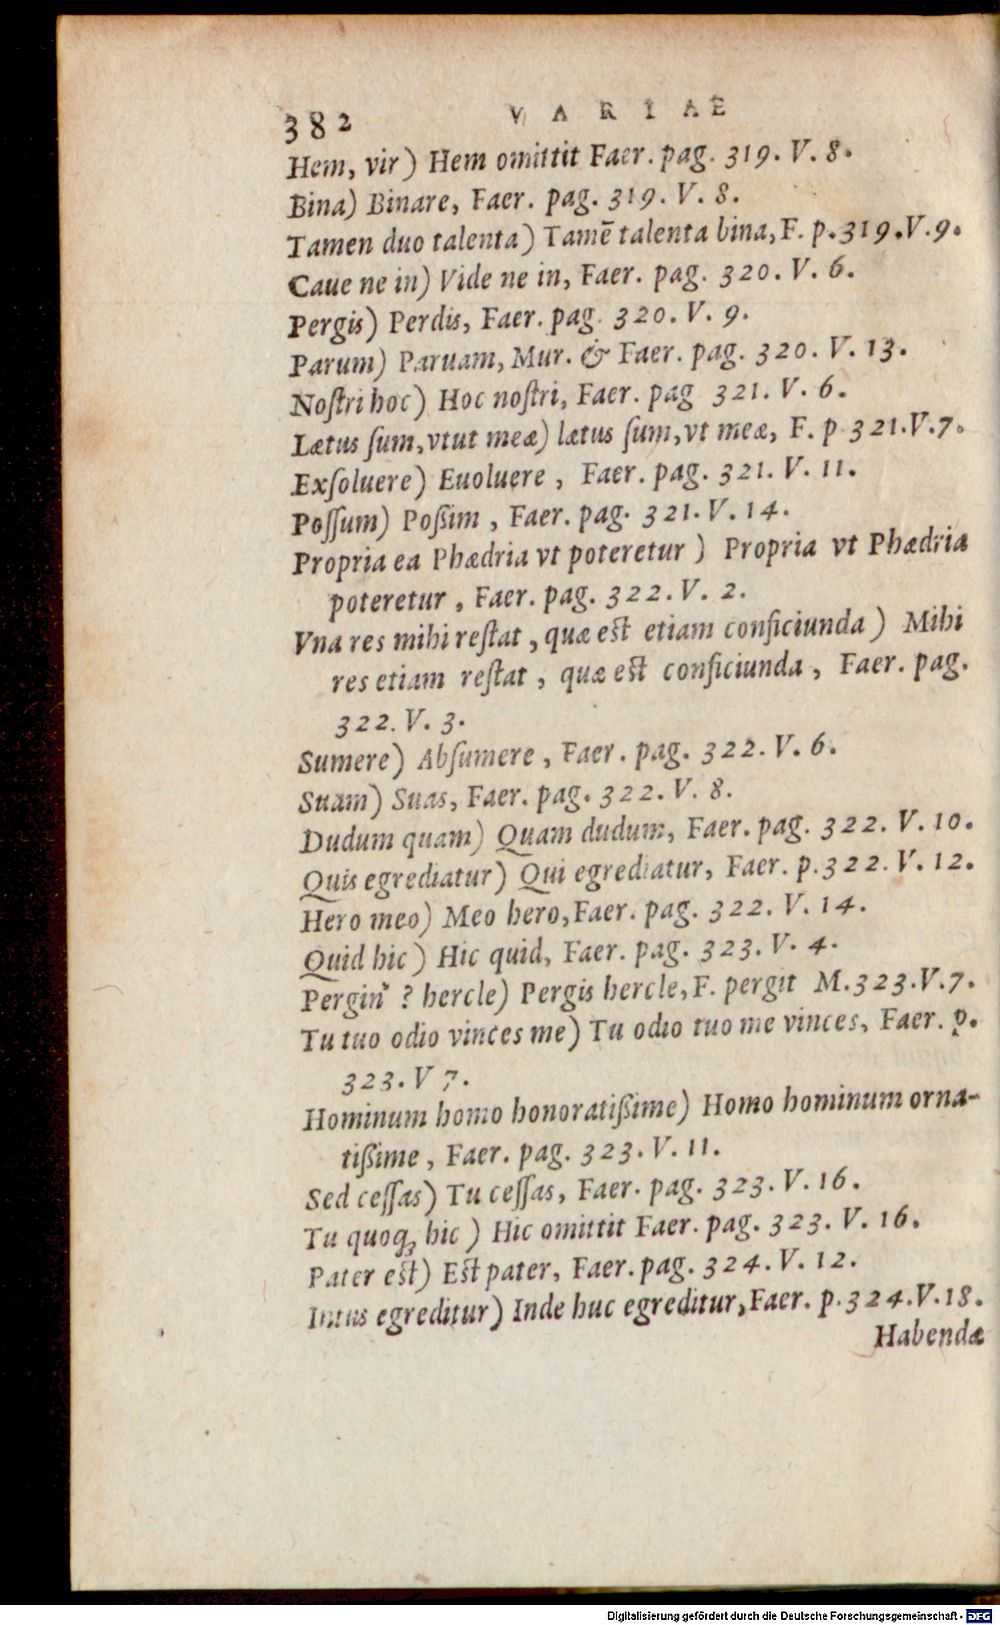 382 VARIAE
Hem, vir) Hem omittit Faer. pag. 319. V. 8.
Bina) Binare, Faer. pag. 319. V. 8.
Tamen duo talenta) Tamē talenta bina, F. p. 319. V. 9.
Caue ne in) Vide ne in, Faer. pag. 320. V. 6.
Pergis) Perdis, Faer. pag. 320. V. 9.
Parum) Paruam, Mur. & Faer. pag. 320. V. 13.
Noſtri hoc) Hoc noſtri, Faer. pag 321. V. 6.
Lætus ſum, vtut meæ) lætus ſum, vt meæ, F. p 321. V. 7.
Exſoluere) Euoluere, Faer. pag. 321. V. 11.
Poſſum) Poßim, Faer. pag. 321. V. 14.
Propria ea Phædria vt poteretur) Propria vt Phædria
poteretur, Faer. pag. 322. V. 2.
Vna res mihi reſtat, quæ eſt etiam conficiunda) Mihi
res etiam reſtat, quæ eſt conficiunda, Faer. pag.
322. V. 3.
Sumere) Abſumere, Faer. pag. 322. V. 6.
Suam) Suas, Faer. pag. 322. V. 8.
Dudum quam) Quam dudum, Faer. pag. 322. V. 10.
Quis egrediatur) Qui egrediatur, Faer. p. 322. V. 12.
Hero meo) Meo hero, Faer. pag. 322. V. 14.
Quid hic) Hic quid, Faer. pag. 323. V. 4.
Pergin' ? hercle) Pergis hercle, F. pergit M. 323. V. 7.
Tu tuo odio vinces me) Tu odio tuo me vinces, Faer. p.
323. V 7.
Hominum homo honoratißime) Homo hominum orna-
tißime, Faer. pag. 323. V. 11.
Sed ceſſas) Tu ceſſas, Faer. pag. 323. V. 16.
Tu quoq; hic) Hic omittit Faer. pag. 323. V. 16.
Pater eſt) Eſt pater, Faer. pag. 324. V. 12.
Intus egreditur) Inde huc egreditur, Faer. p. 324. V. 18.
Habendæ
Digitalisierung gefördert durch die Deutsche Forschungsgemeinschaft - DFG